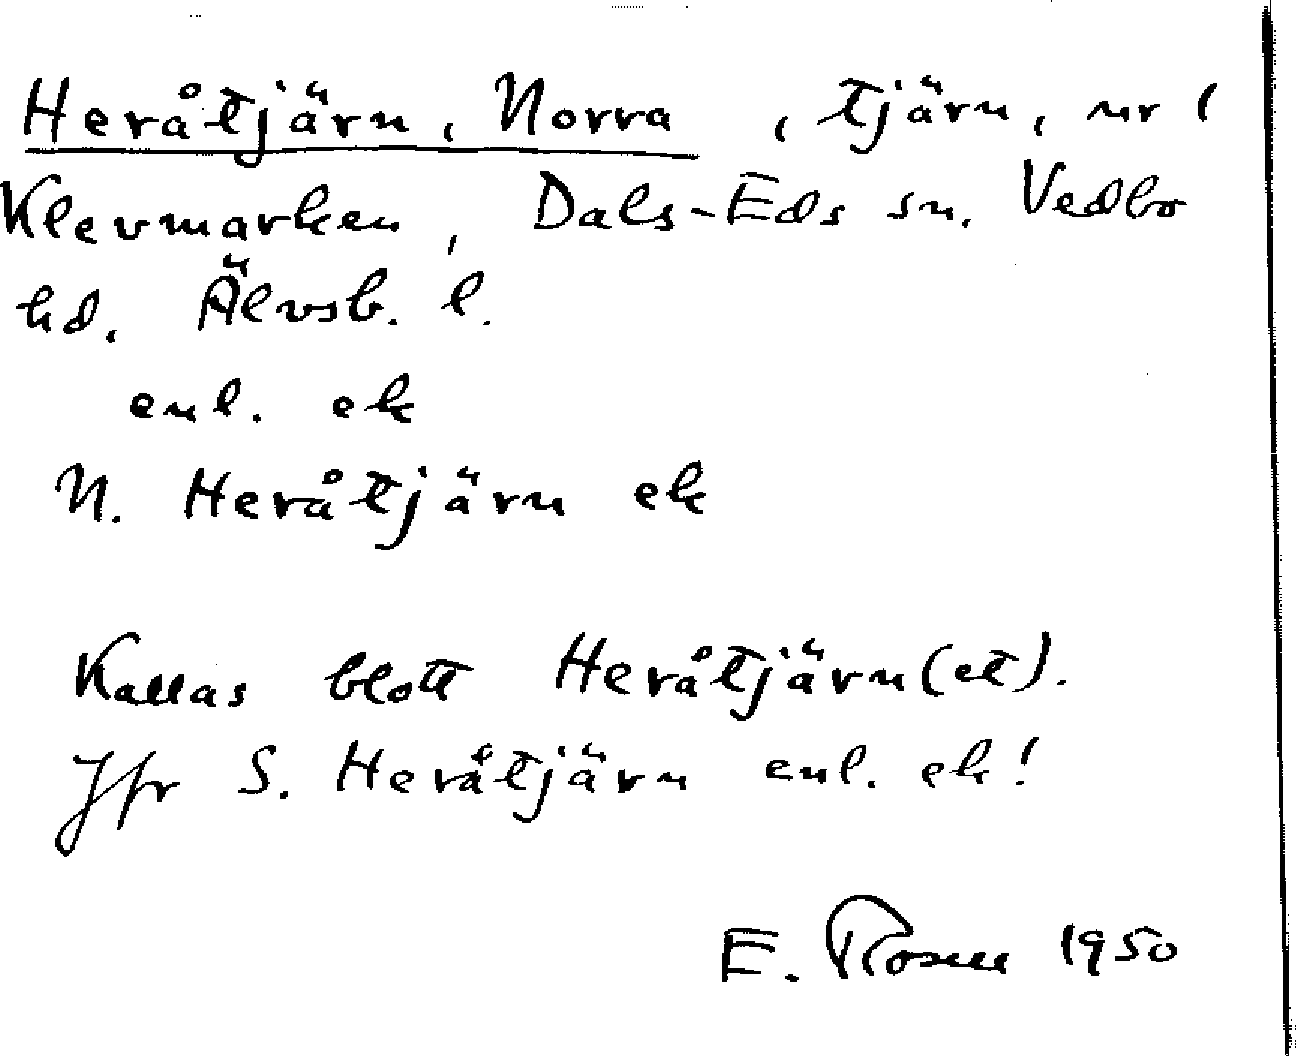 Heråtjärn, Norra, tjärn, nr 1
Klevmarken, Dals-Eds sn. Vedbo
hd. Älvsb. l.
enl. ek
N. Heråtjärn ek
Kallas blott Heråtjärn(et).
Jfr S. Heråtjärn enl. ek!
E. Rosén 1950